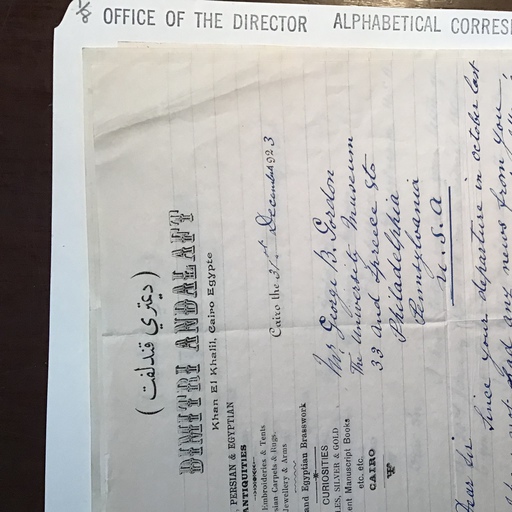 ( ديمتري قندلفت )
DIMITRI ANDALAFT
Khan El Khalil, Cairo Egypte
, PERSIAN & EGYPTIAN
ANTIQUITIES
Embroideries & Tents
sian Carpets & Rugs.
Jewellery & Arms
and Egyptian Brasswork
CURIOSITIES
LES, SILVER & GOLD
ent Manuscript Books
etc. etc.
CAIRO
Cairo the 31st December 1923
Mr George B. Gordon
The University Museum
33 and Spreece Sts
Philadelphia
Pennsylvania
U.S.A
Dear Sir
Since your departure in october last
not had any news from you,
OFFICE OF THE DIRECTOR ALPHABETICAL CORRES